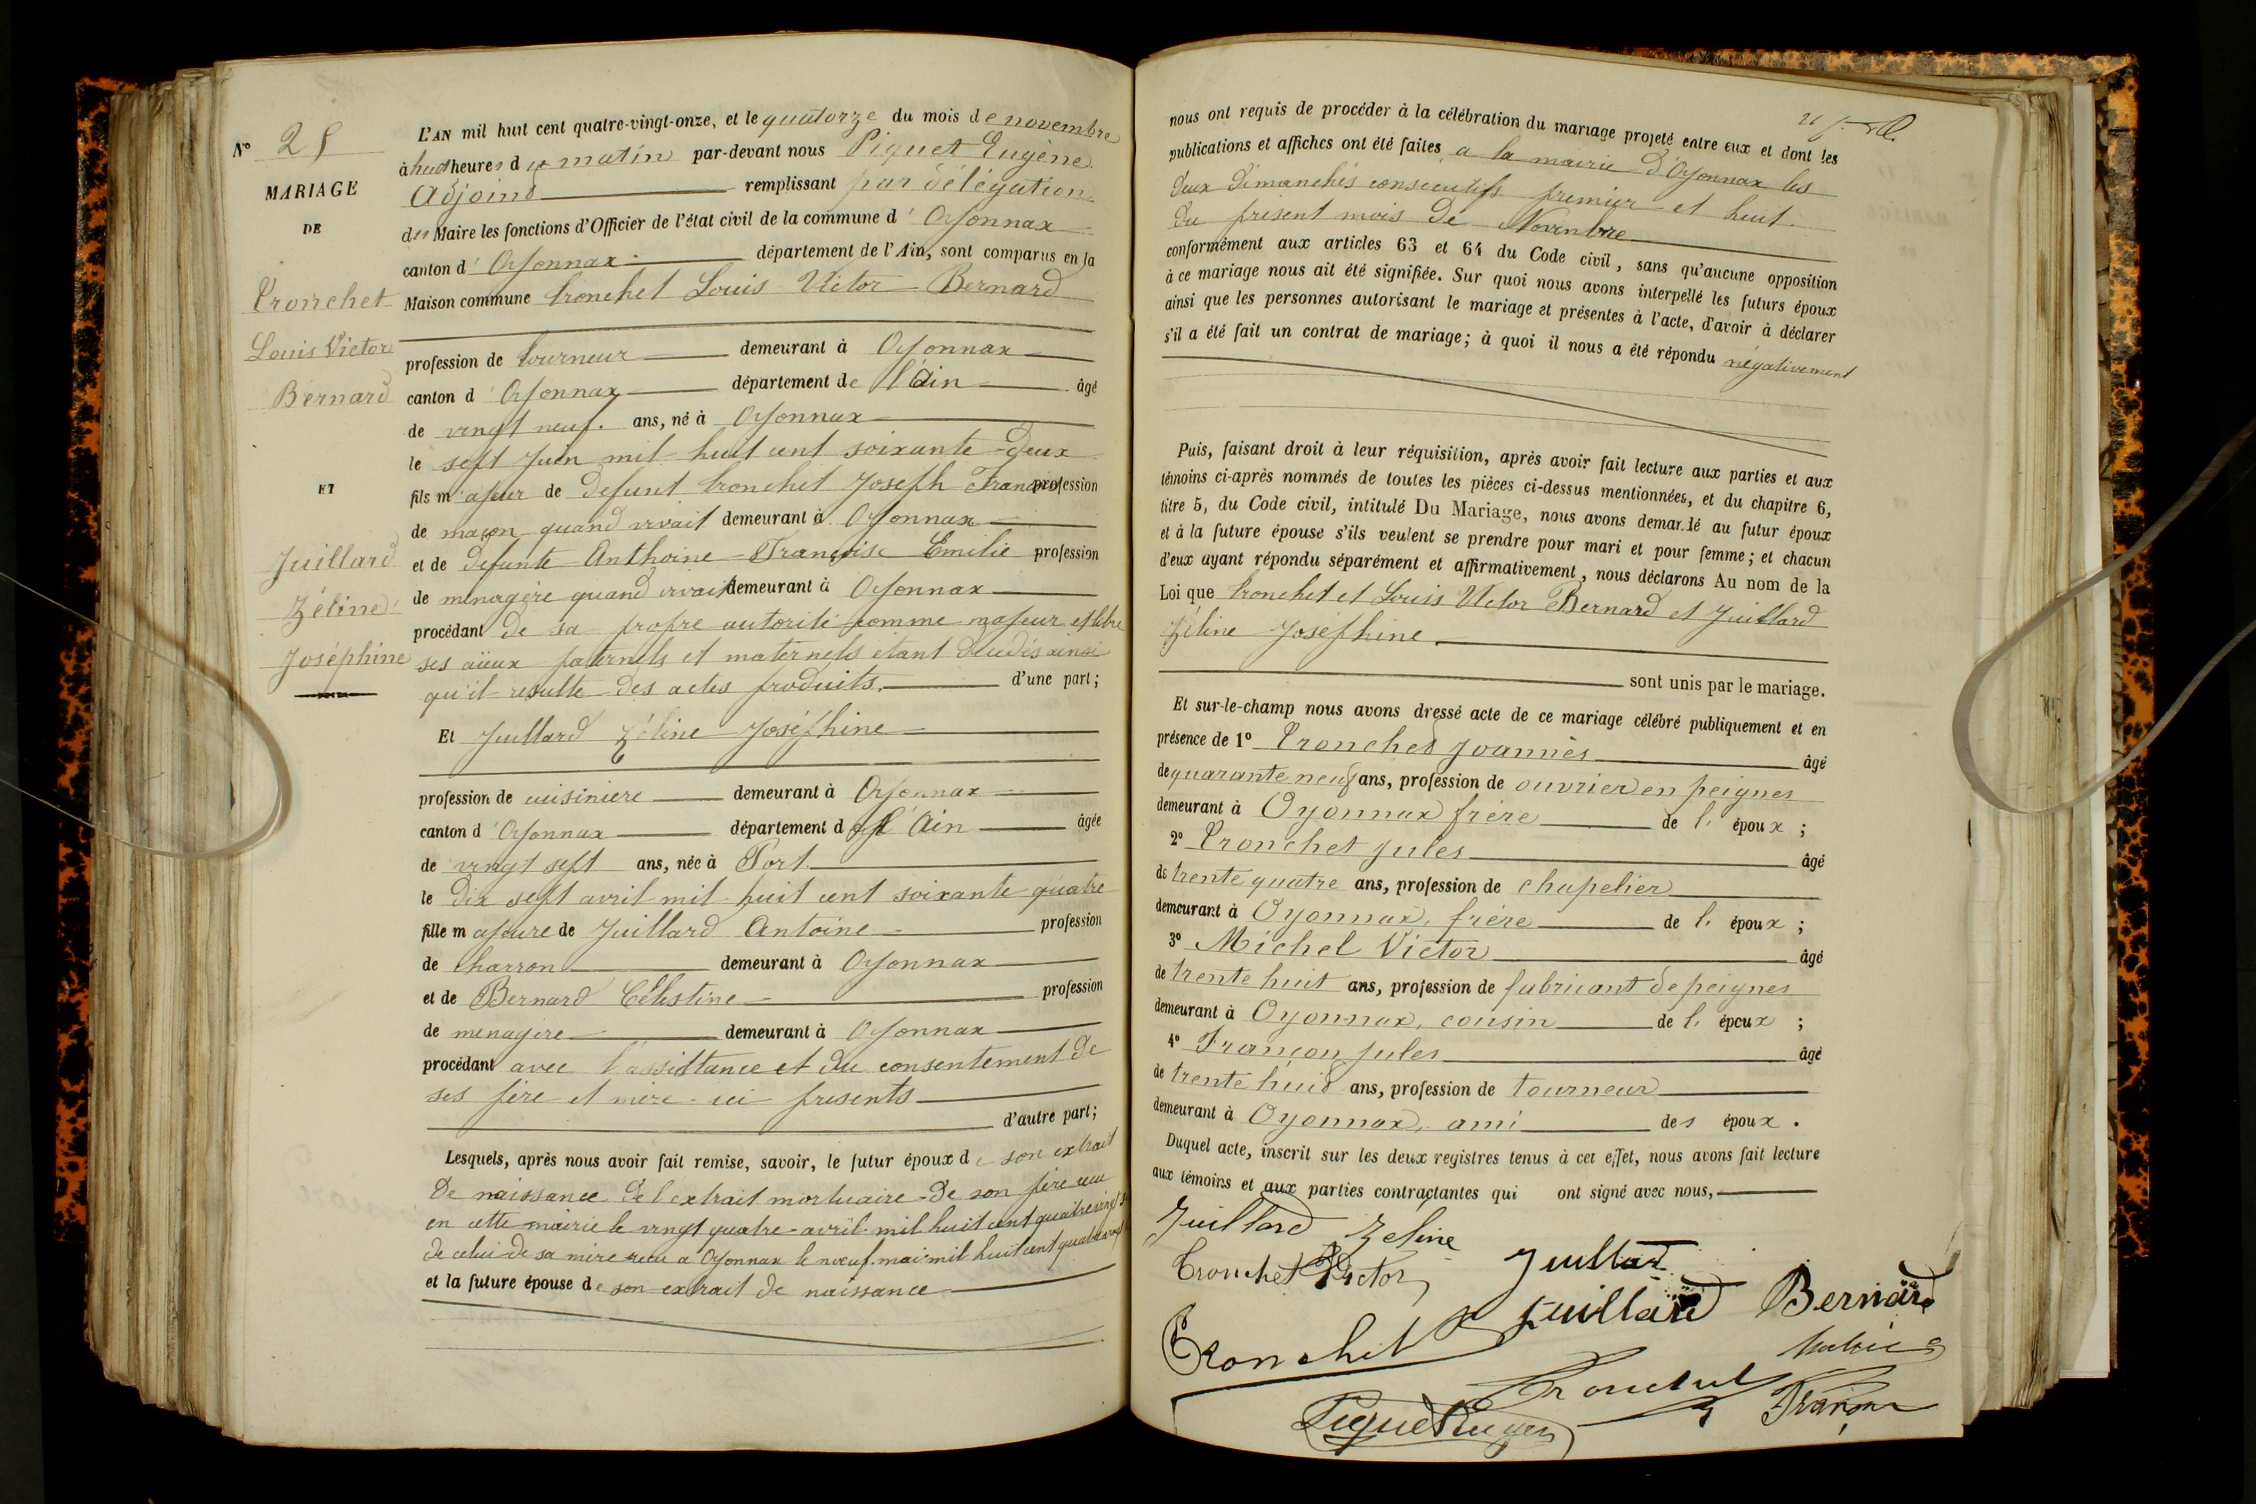 N° 28
MARIAGE
DE
Tronchet
Louis Victor
Bernard
ET
Juillard
Zéline
Joséphine
L'AN mil huit cent quatre-vingt-onze, et le quatorze du mois de novembre
à huit heures du matin par-devant nous Piquet Eugène
Adjoint remplissant par délégation
du Maire les fonctions d'Officier de l'état civil de la commune d'Oyonnax
canton d'Oyonnax département de l'Ain, sont comparus en la
Maison commune Tronchet Louis Victor Bernard
profession de tourneur demeurant à Oyonnax
canton d'Oyonnax département de l'Ain âgé
de vingt neuf ans, né à Oyonnax
le sept Juin mil huit cent soixante-deux
fils majeur de defunt Tronchet Joseph François profession
de maçon quand vivait demeurant à Oyonnax
et de defunte Anthoine Françoise Emilie profession
de ménagère quand vivait demeurant à Oyonnax
procédant de sa propre autorité comme majeur et libre
ses aïeux paternels et maternels étant décédés ainsi
qu'il resulte des actes produits. d'une part;
Et Juillard Zéline Joséphine
profession de cuisinière demeurant à Oyonnax
canton d'Oyonnax département de l'Ain âgée
de vingt sept ans, née à Port
le dix sept avril mil huit cent soixante quatre
fille majeure de Juillard Antoine profession
de charron demeurant à Oyonnax
et de Bernard Célestine profession
de menagère demeurant à Oyonnax
procédant avec l'assistance et du consentement de
ses père et mère ici presents
d'autre part;
Lesquels, après nous avoir fait remise, savoir, le futur époux de son extrait
de naissance de l'extrait mortuaire de son père reçu
en cette mairie le vingt quatre avril mil huit cent quatre vingt
de celui de sa mère reçu a Oyonnax le neuf mai mil huit cent quatre vingt
et la future épouse de son extrait de naissance
nous ont requis de procéder à la célébration du mariage projeté entre eux et dont les
publications et affiches ont été faites a la mairie d'Oyonnax les
deux dimanches consecutifs premier et huit
du présent mois de Novembre
conformément aux articles 63 et 64 du Code civil, sans qu'aucune opposition
à ce mariage nous ait été signifiée. Sur quoi nous avons interpellé les futurs époux
ainsi que les personnes autorisant le mariage et présentes à l'acte, d'avoir à déclarer
s'il a été fait un contrat de mariage; à quoi il nous a été répondu négativement
Puis, faisant droit à leur réquisition, après avoir fait lecture aux parties et aux
témoins ci-après nommés de toutes les pièces ci-dessus mentionnées, et du chapitre 6,
titre 5, du Code civil, intitulé Du Mariage, nous avons demandé au futur époux
et à la future épouse s'ils veulent se prendre pour mari et pour femme; et chacun
d'eux ayant répondu séparément et affirmativement, nous déclarons Au nom de la
Loi que Tronchet et Louis Victor Bernard et Juillard
Zéline Joséphine
sont unis par le mariage.
Et sur-le-champ nous avons dressé acte de ce mariage célébré publiquement et en
présence de 1° Tronchet Joannès âgé
de quarante neuf ans, profession de ouvrier en peignes
demeurant à Oyonnax frère de l'époux;
2° Tronchet Jules âgé
de trente quatre ans, profession de chapelier
demeurant à Oyonnax, frère de l'époux;
3° Michel Victor âgé
de trente huit ans, profession de fabricant de peignes
demeurant à Oyonnax, cousin de l'époux;
4° Françon Jules âgé
de trente huit ans, profession de tourneur
demeurant à Oyonnax, ami des époux.
Duquel acte, inscrit sur les deux registres tenus à cet effet, nous avons fait lecture
aux témoins et aux parties contractantes qui ont signé avec nous,
Juillard Zeline
Tronchet Victor Juillard
Juillard Bernard
Tronchet
Tronchet Françon
Piquet Eugène